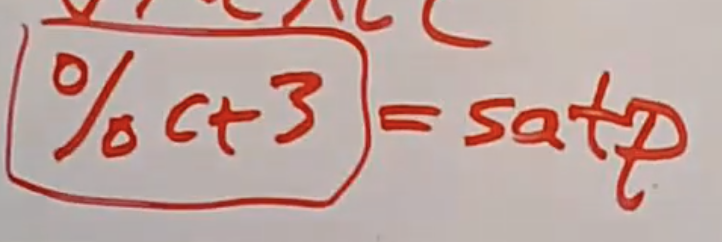 %ct3 = satp